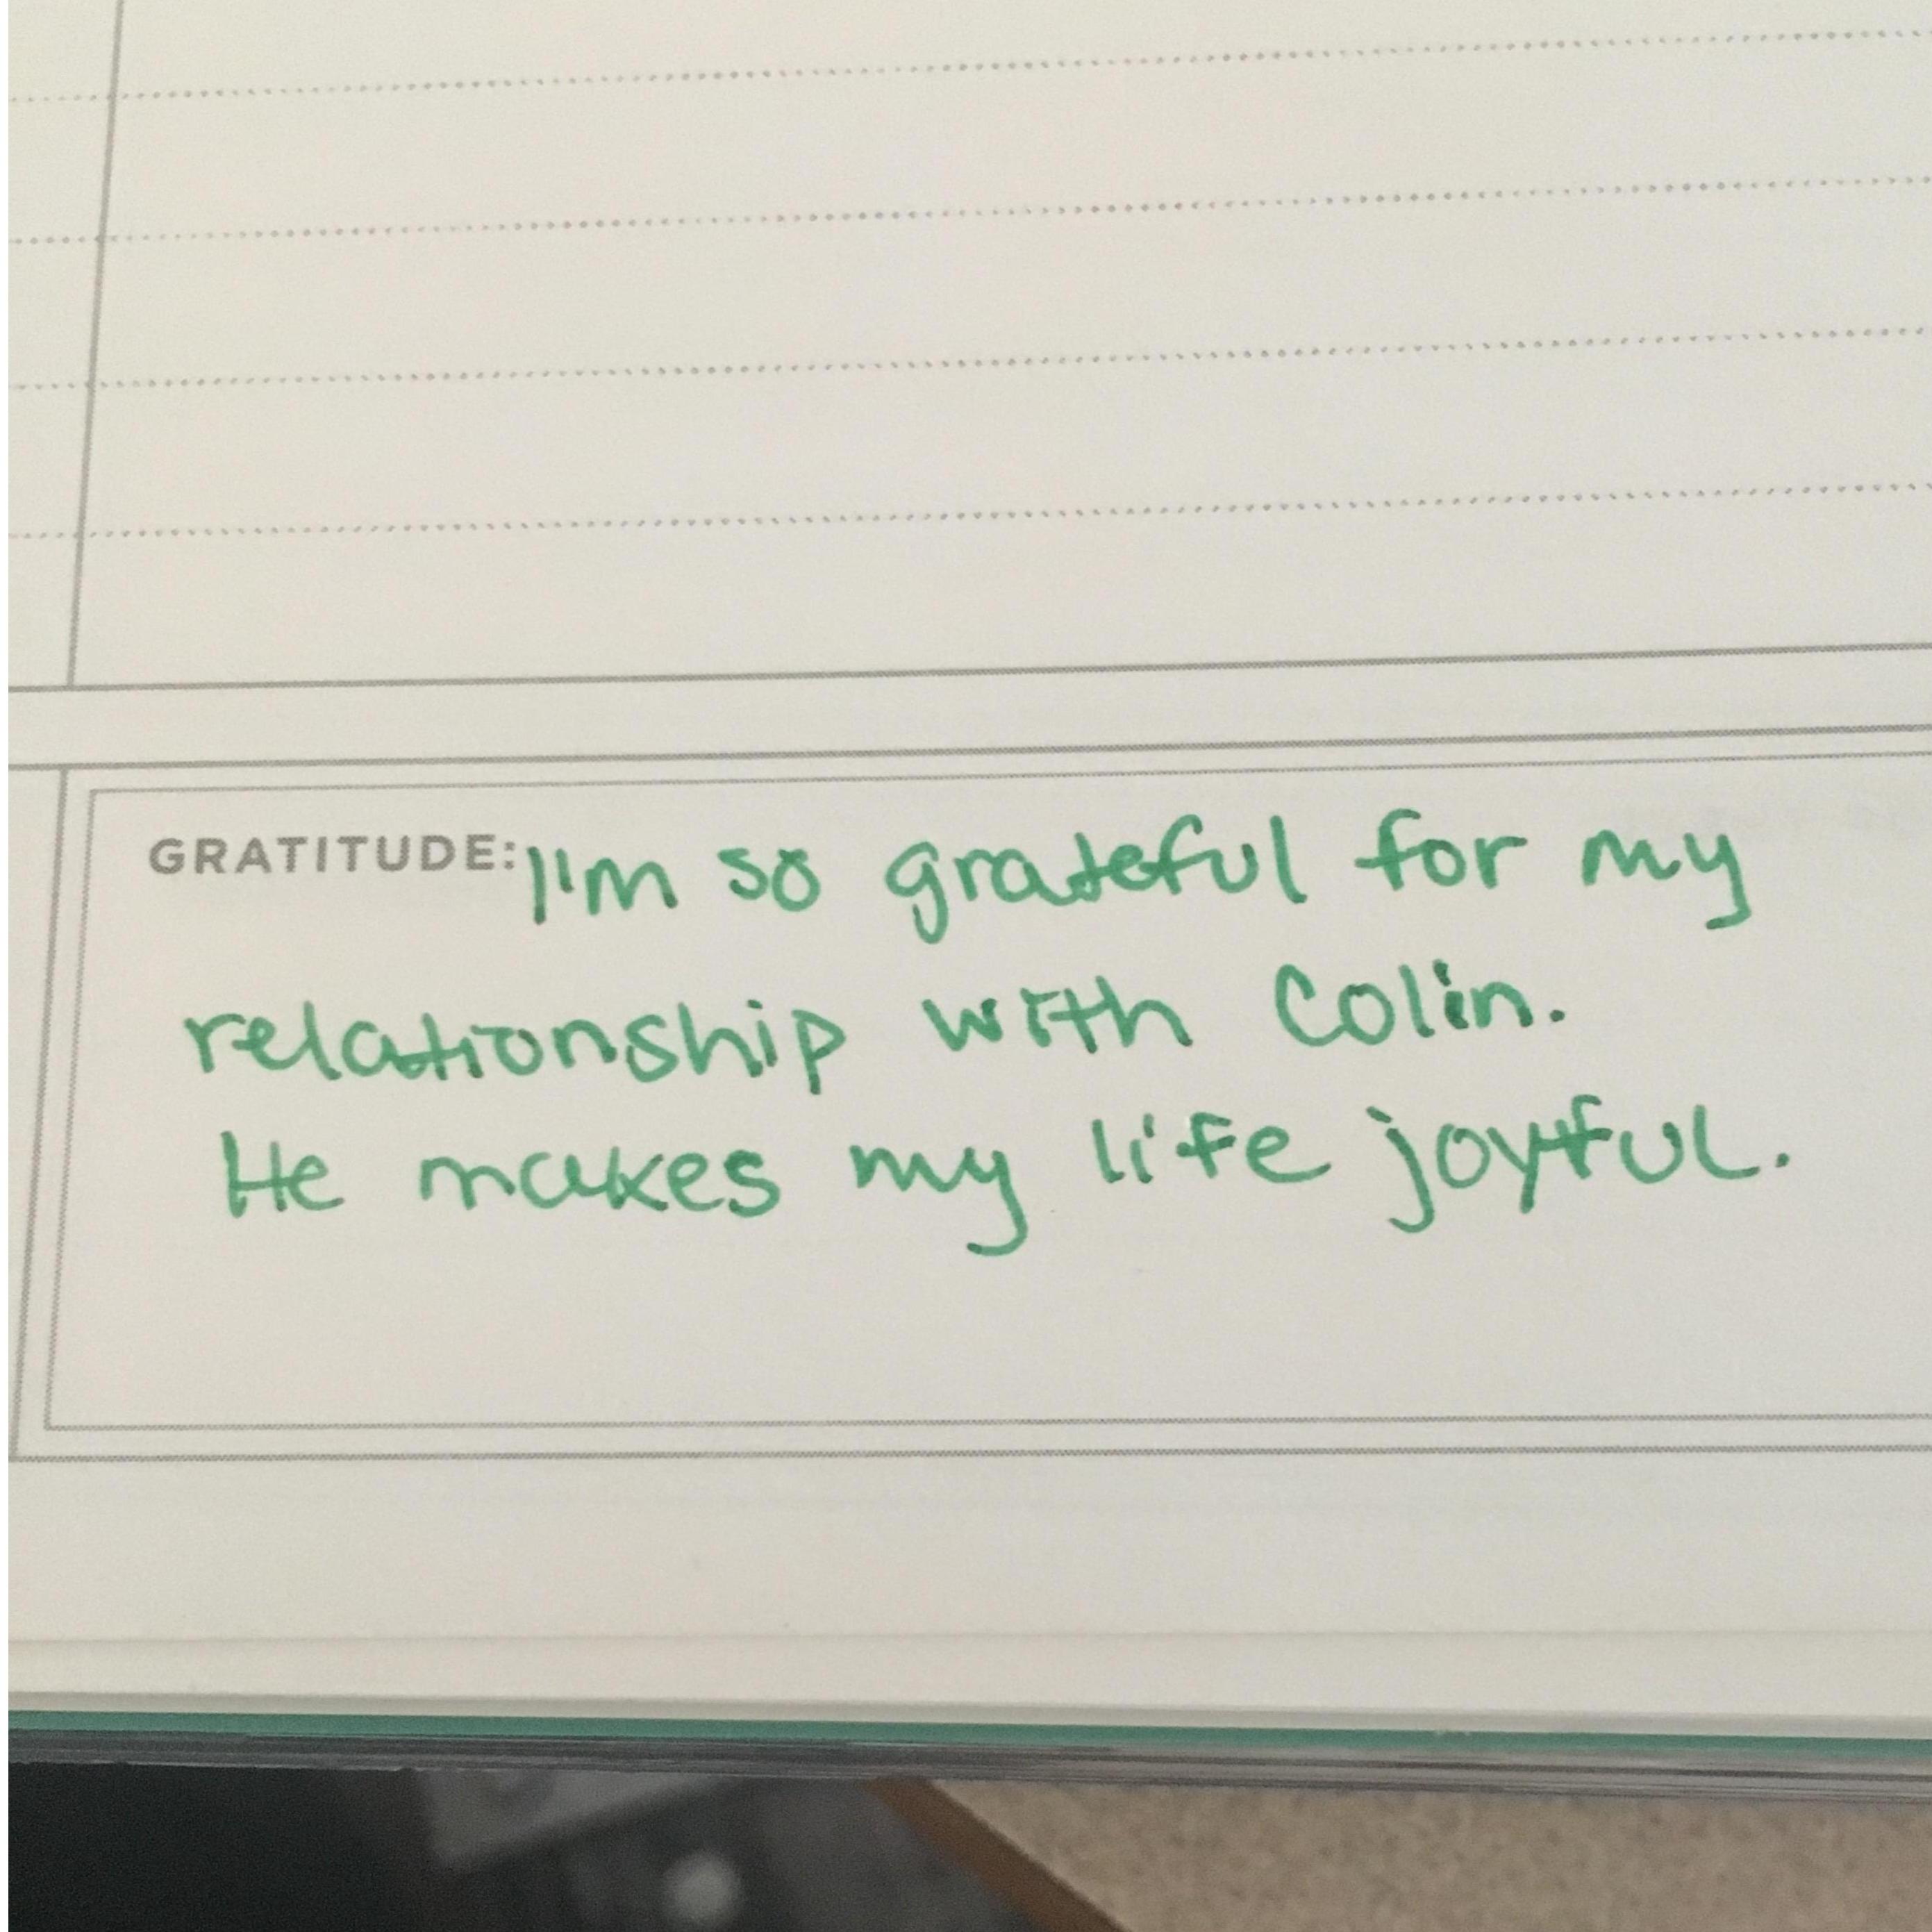 GRATITUDE: I'm so grateful for my
relationship with Colin.
He makes my life joyful.